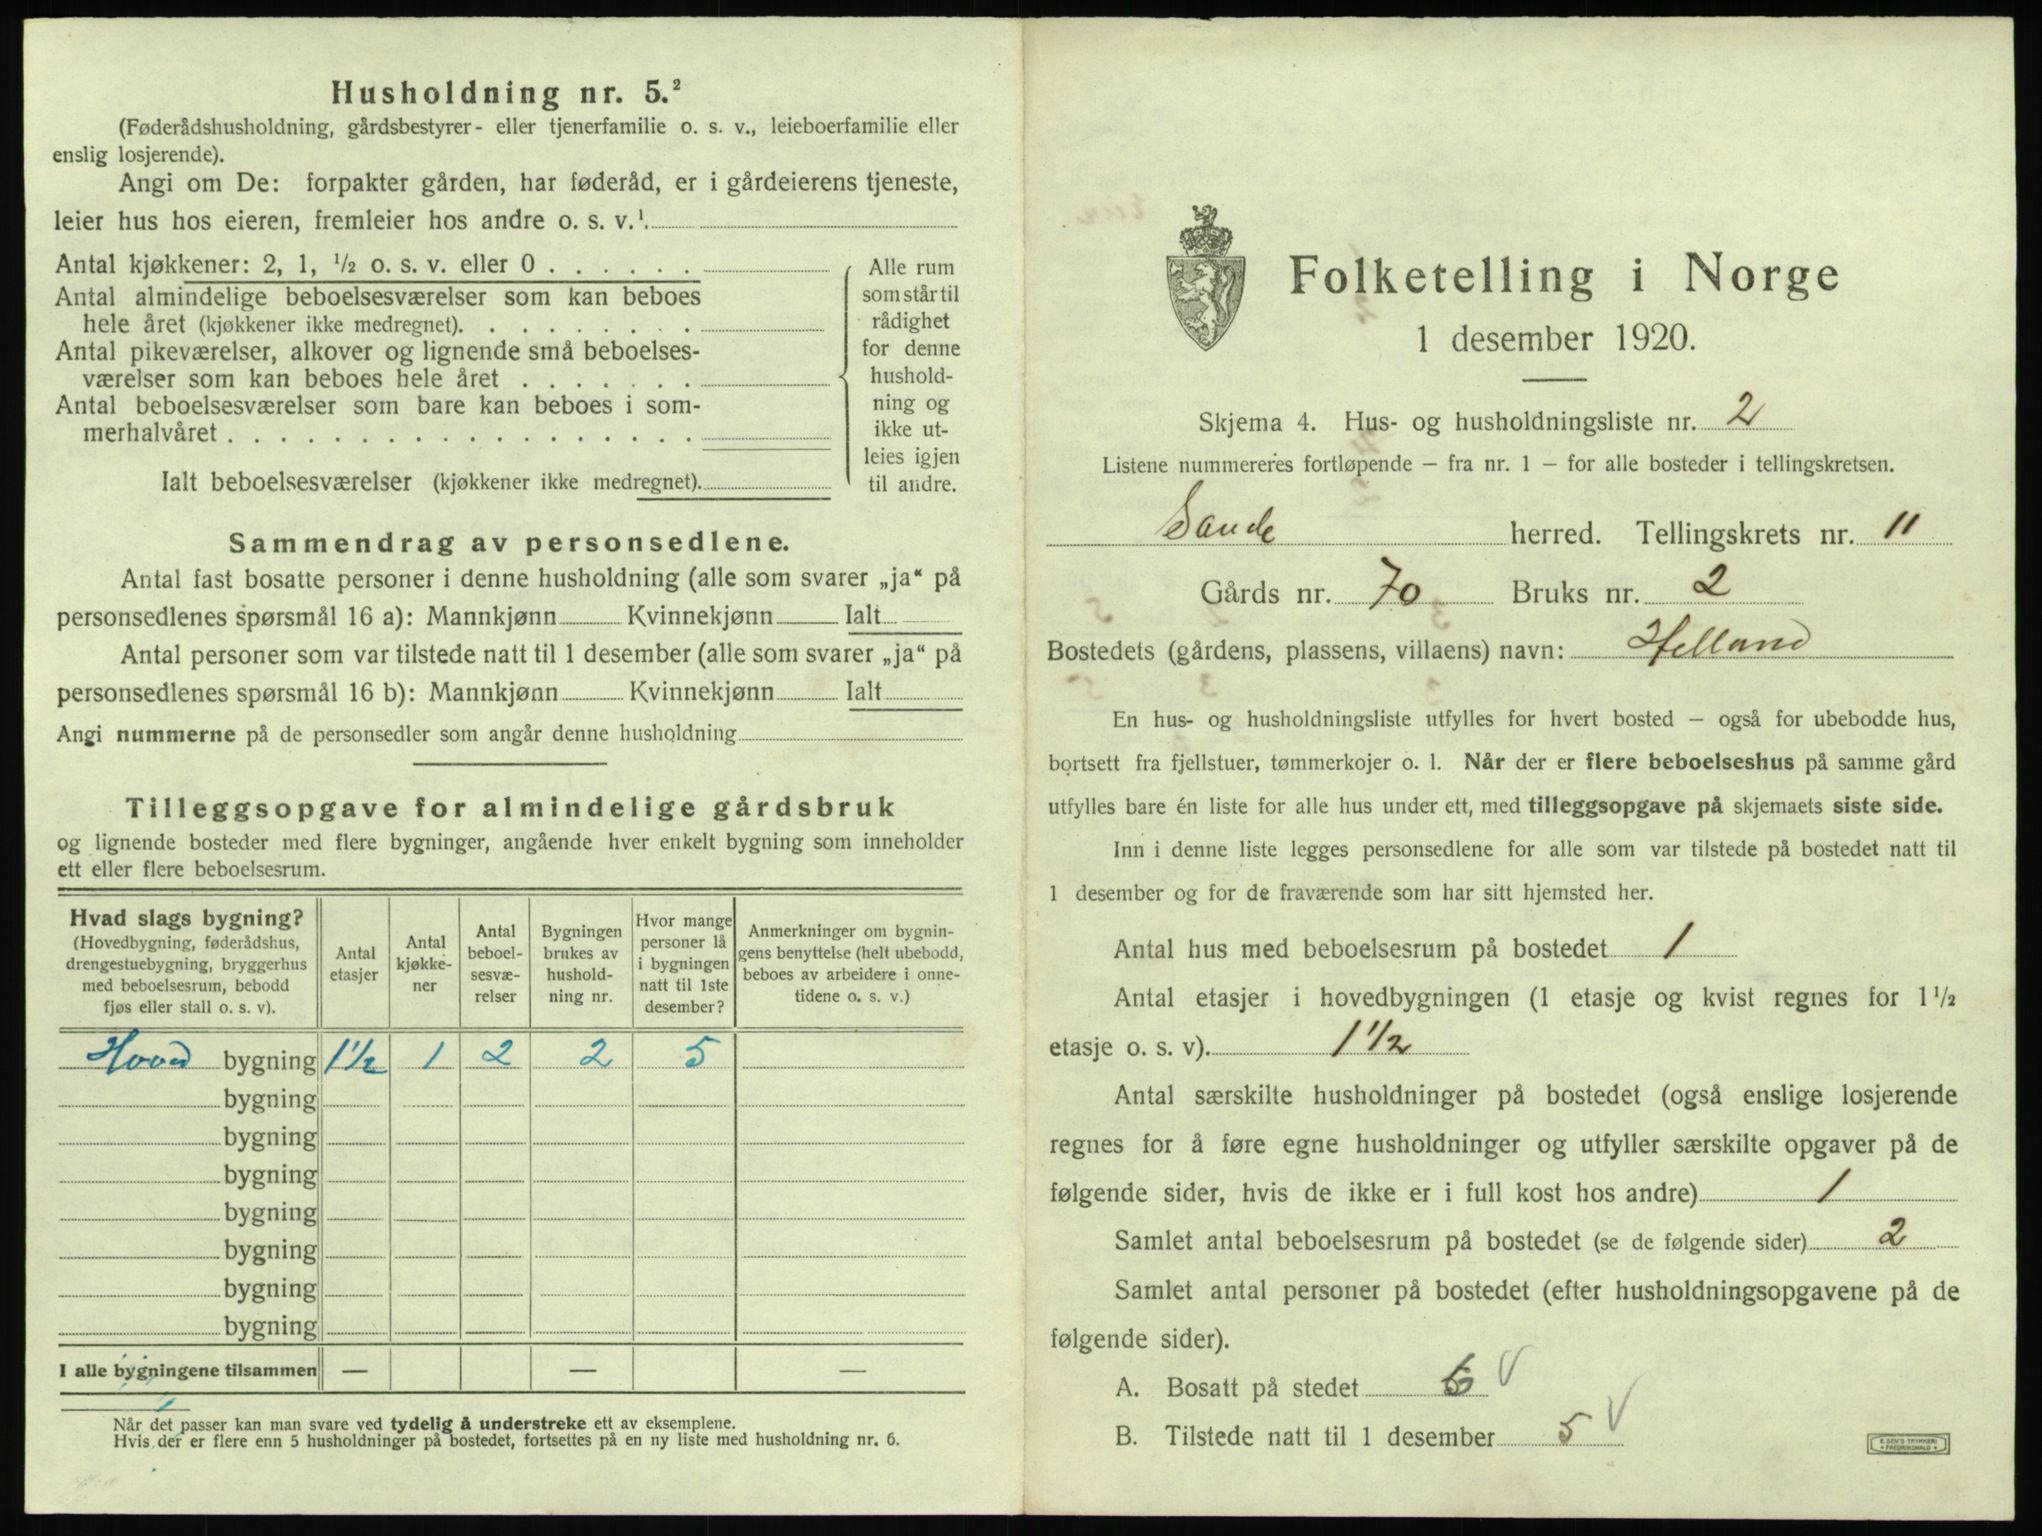 Husholdning nr. 5.²
(Føderådshusholdning, gårdsbestyrer- eller tjenerfamilie o. s. v., leieboerfamilie eller
enslig losjerende).
Angi om De: forpakter gården, har føderåd, er i gårdeierens tjeneste,
leier hus hos eieren, fremleier hos andre o. s. v.¹
Antal kjøkkener: 2, 1, ½ o. s. v. eller 0
Antal almindelige beboelsesværelser som kan beboes
hele året (kjøkkener ikke medregnet)
Antal pikeværelser, alkover og lignende små beboelses-
værelser som kan beboes hele året
Antal beboelsesværelser som bare kan beboes i som-
merhalvåret
Ialt beboelsesværelser (kjøkkener ikke medregnet)
Alle rum
som står til
rådighet
for denne
hushold-
ning og
ikke ut-
leies igjen
til andre.
Sammendrag av personsedlene.
Antal fast bosatte personer i denne husholdning (alle som svarer „ja“ på
personsedlenes spørsmål 16 a): Mannkjønn Kvinnekjønn Ialt
Antal personer som var tilstede natt til 1 desember (alle som svarer „ja“ på
personsedlenes spørsmål 16 b): Mannkjønn Kvinnekjønn Ialt
Angi nummerne på de personsedler som angår denne husholdning
Tilleggsopgave for almindelige gårdsbruk
og lignende bosteder med flere bygninger, angående hver enkelt bygning som inneholder
ett eller flere beboelsesrum.
Hvad slags bygning?
(Hovedbygning, føderådshus,
drengestuebygning, bryggerhus
med beboelsesrum, bebodd
fjøs eller stall o. s. v).
Antal
etasjer
Antal
kjøkke-
ner
Antal
beboel-
sesvæ-
relser
Bygningen
brukes av
hushold-
ning nr.
Hvor mange
personer lå
i bygningen
natt til 1ste
desember?
Anmerkninger om bygnin-
gens benyttelse (helt ubebodd,
beboes av arbeidere i onne-
tidene o. s. v.)
Hoved bygning 1½ 1 2 2 5
bygning
bygning
bygning
bygning
bygning
bygning
bygning
I alle bygningene tilsammen — — —
Når det passer kan man svare ved tydelig å understreke ett av eksemplene.
Hvis der er flere enn 5 husholdninger på bostedet, fortsettes på en ny liste med husholdning nr. 6.
Folketelling i Norge
1 desember 1920.
Skjema 4. Hus- og husholdningsliste nr. 2
Listene nummereres fortløpende – fra nr. 1 – for alle bosteder i tellingskretsen.
Sande herred. Tellingskrets nr. 11
Gårds nr. 70 Bruks nr. 2
Bostedets (gårdens, plassens, villaens) navn: Helland
En hus- og husholdningsliste utfylles for hvert bosted – også for ubebodde hus,
bortsett fra fjellstuer, tømmerkojer o. l. Når der er flere beboelseshus på samme gård
utfylles bare én liste for alle hus under ett, med tilleggsopgave på skjemaets siste side.
Inn i denne liste legges personsedlene for alle som var tilstede på bostedet natt til
1 desember og for de fraværende som har sitt hjemsted her.
Antal hus med beboelsesrum på bostedet 1
Antal etasjer i hovedbygningen (1 etasje og kvist regnes for 1½
etasje o. s. v). 1½
Antal særskilte husholdninger på bostedet (også enslige losjerende
regnes for å føre egne husholdninger og utfyller særskilte opgaver på de
følgende sider, hvis de ikke er i full kost hos andre) 1
Samlet antal beboelsesrum på bostedet (se de følgende sider) 2
Samlet antal personer på bostedet (efter husholdningsopgavene på de
følgende sider).
A. Bosatt på stedet 6
B. Tilstede natt til 1 desember 5